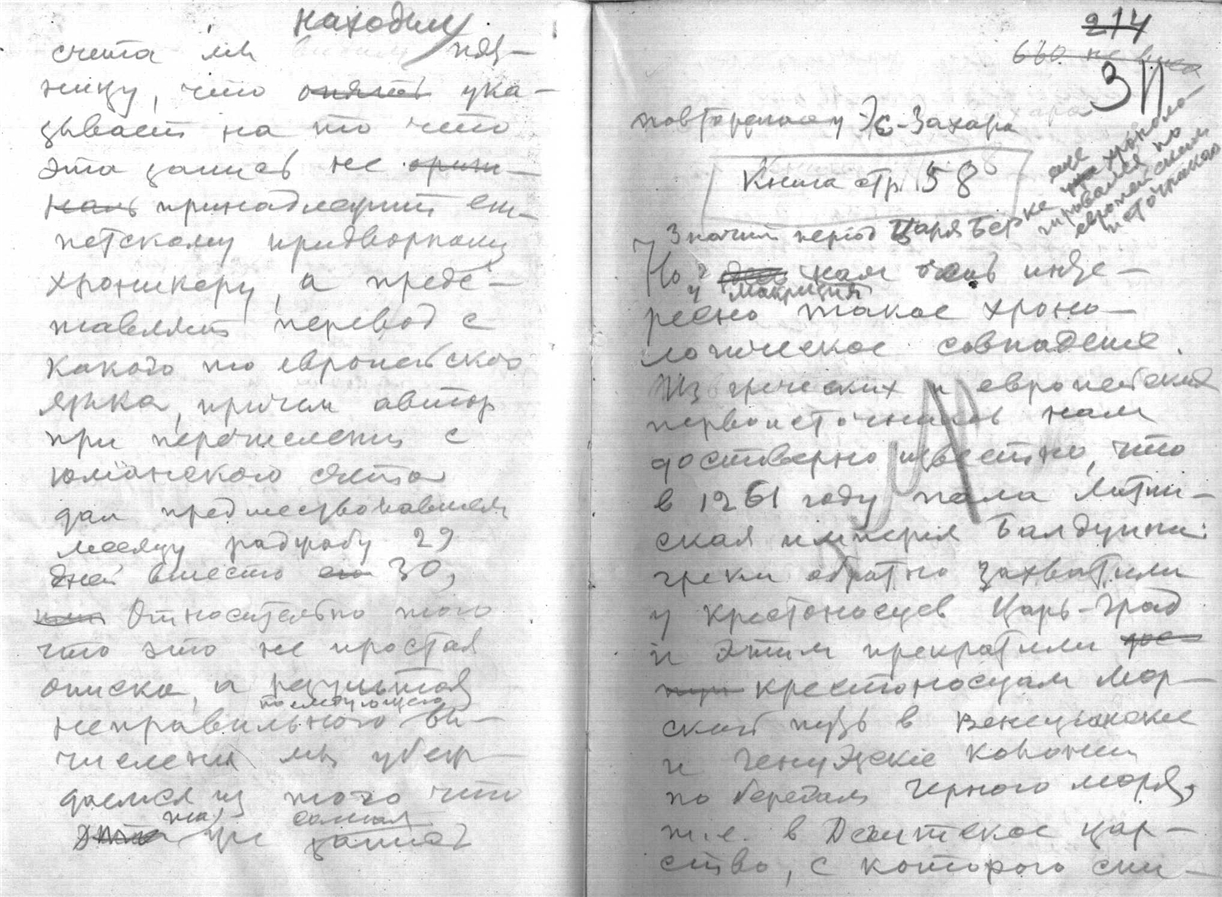 находим
счета мы видим пят-
ницу, что опять ука-
зывает на то что
эта запись не ориги-
наль принадлежит еги-
петскому придворному
хроникеру, а предс-
тавляет перевод с
какого то европейского
языка, причем автор
при перечислении с
юлианского счета
дал предшествовавшему
месяцу раджабу 29
дней вместо его 30,
Относительно того
что это не простая
описка, а результат
последующего
неправильного вы-
числения мы убеж-
даемся из того что
та же самая
эта запись
214
660
311
повторенная у Эс-Захара
Книга стр. 58
еще
не хроноло-
гировался по
европейским
источникам
Значит период Царя Берке
Но нам очень инте-
у Макризия
ресно такое хроно-
логическое совпадение.
Из греческих и европейских
первоисточников нам
достоверно известно, что
в 1261 году пала Латин-
ская империя Балдуина:
греки обратно захватили
у крестоносцев Царь-Град
и этим прекратили
крестоносцам мор-
ской путь в Венецианские
и Генуэзские колонии
по берегам Черного моря,
т.е. в Дешитское цар-
ство, с которого сни-